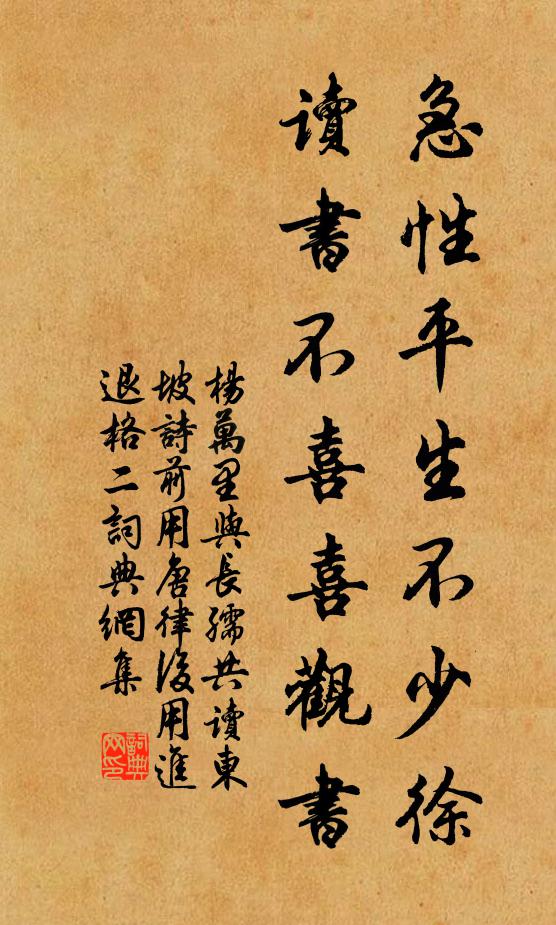 急性平生不少徐
讀書不喜喜觀書
楊萬里與長孺共讀東
坡詩前用唐律後用進
退格二詞典網集
詞典網印